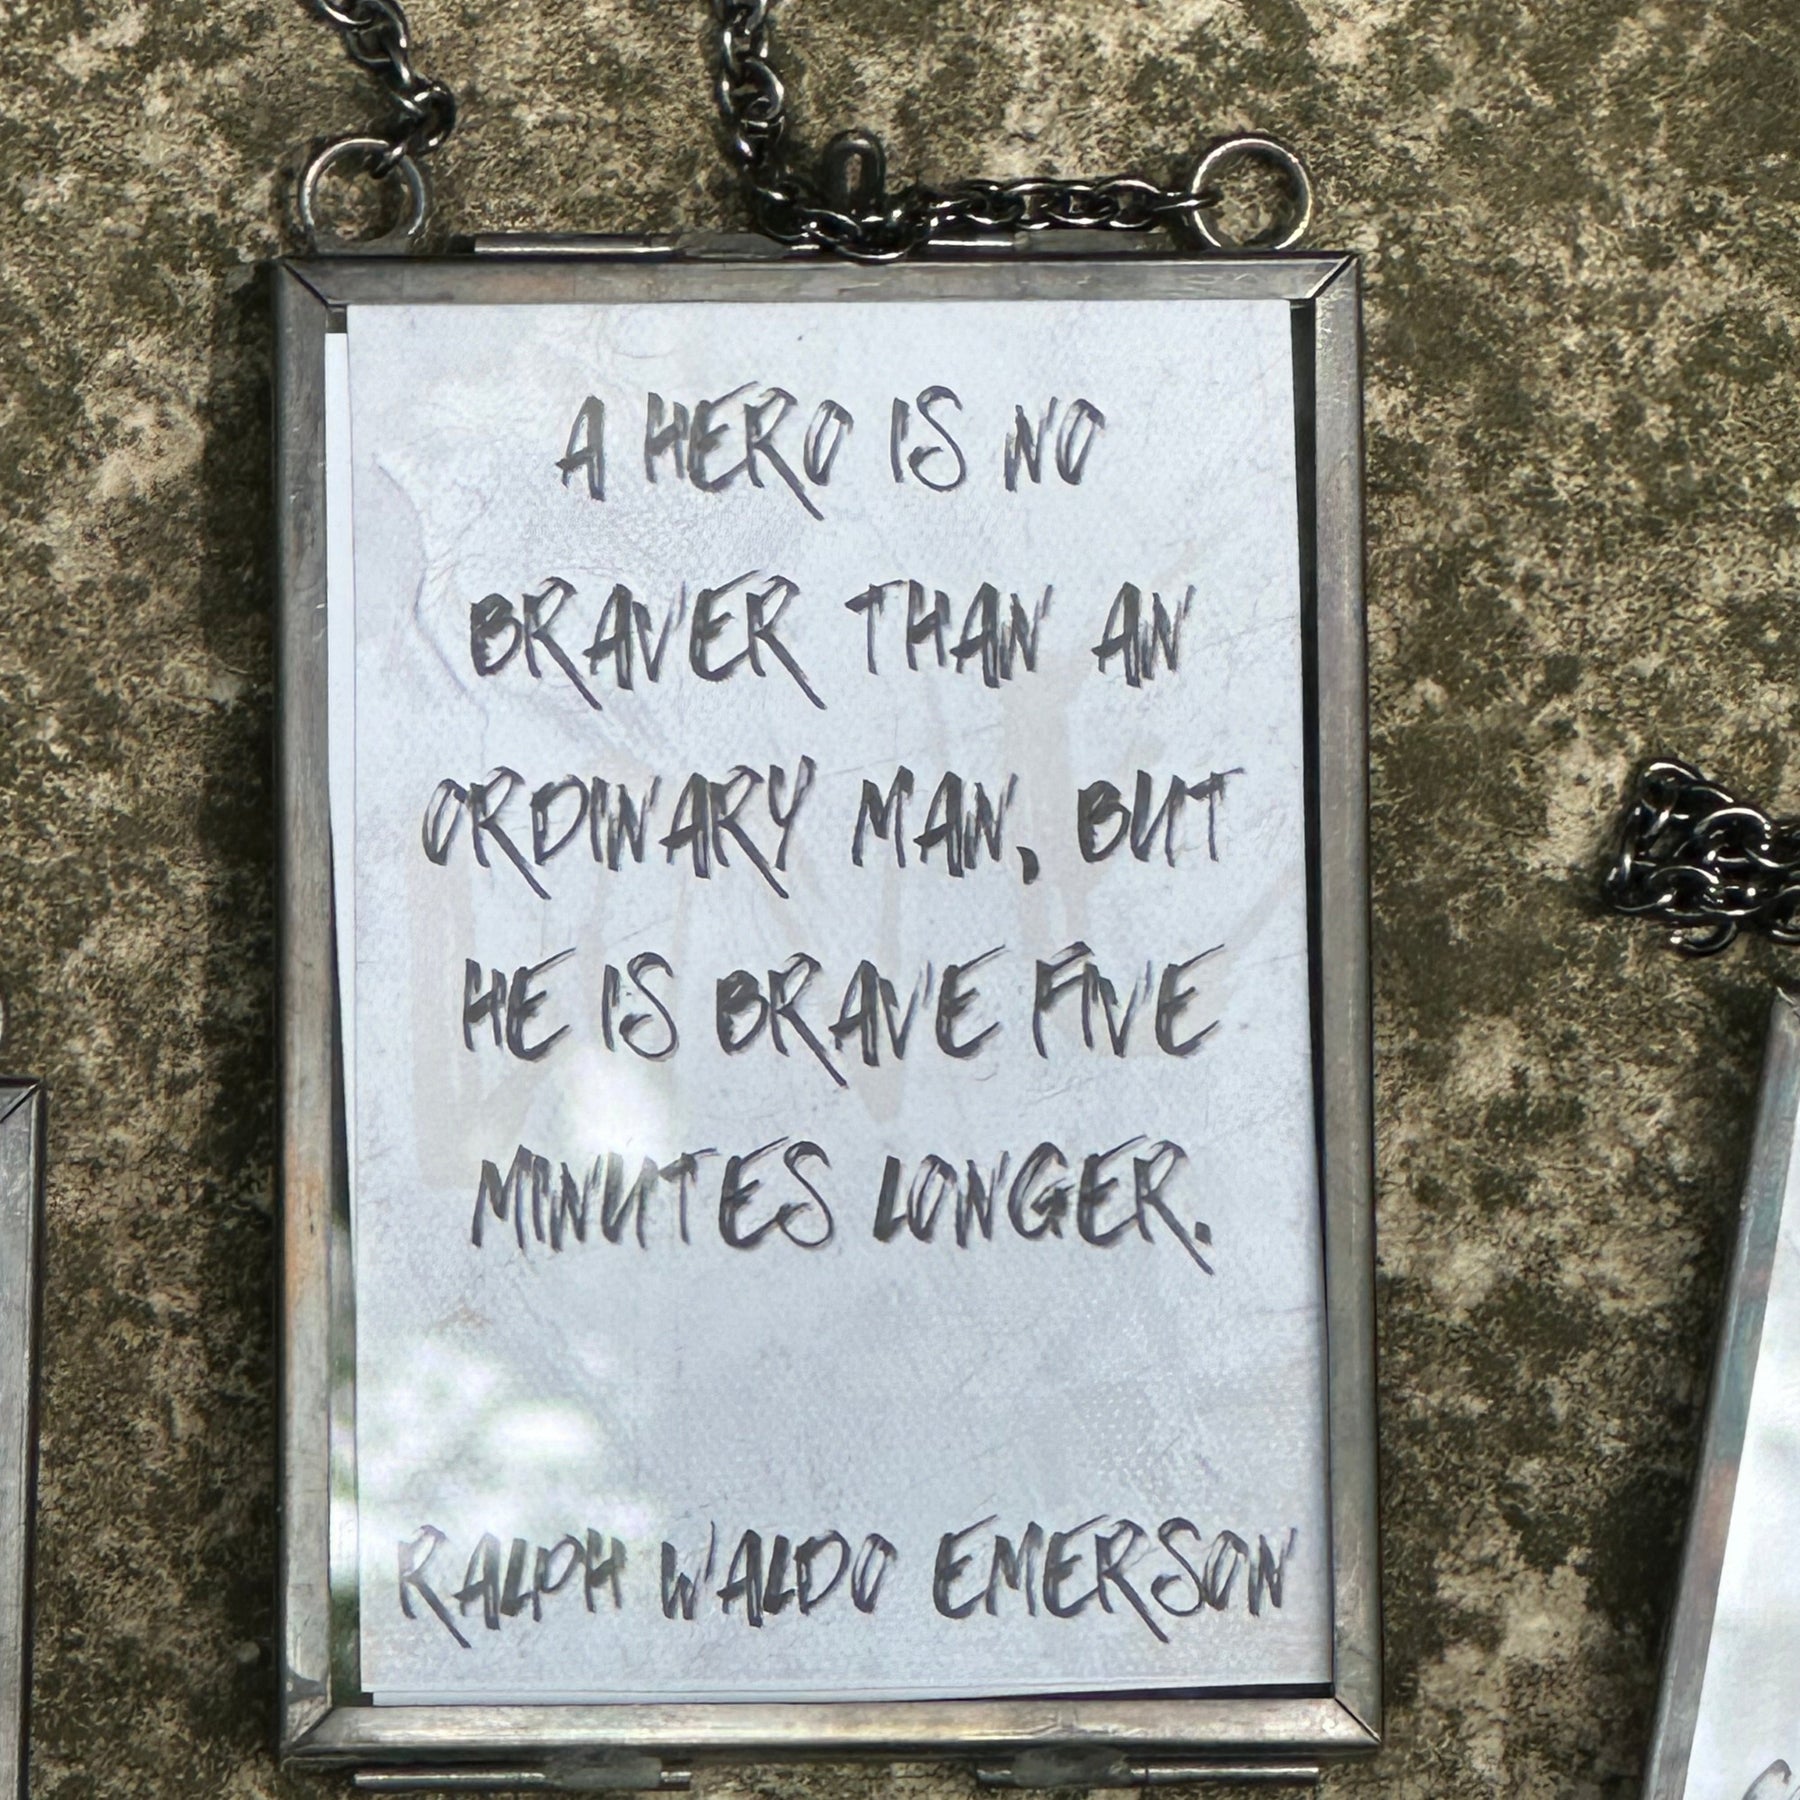 A HERO IS NO
BRAVER THAN AN
ORDINARY MAN, BUT
HE IS BRAVE FIVE
MINUTES LONGER.
RALPH WALDO EMERSON